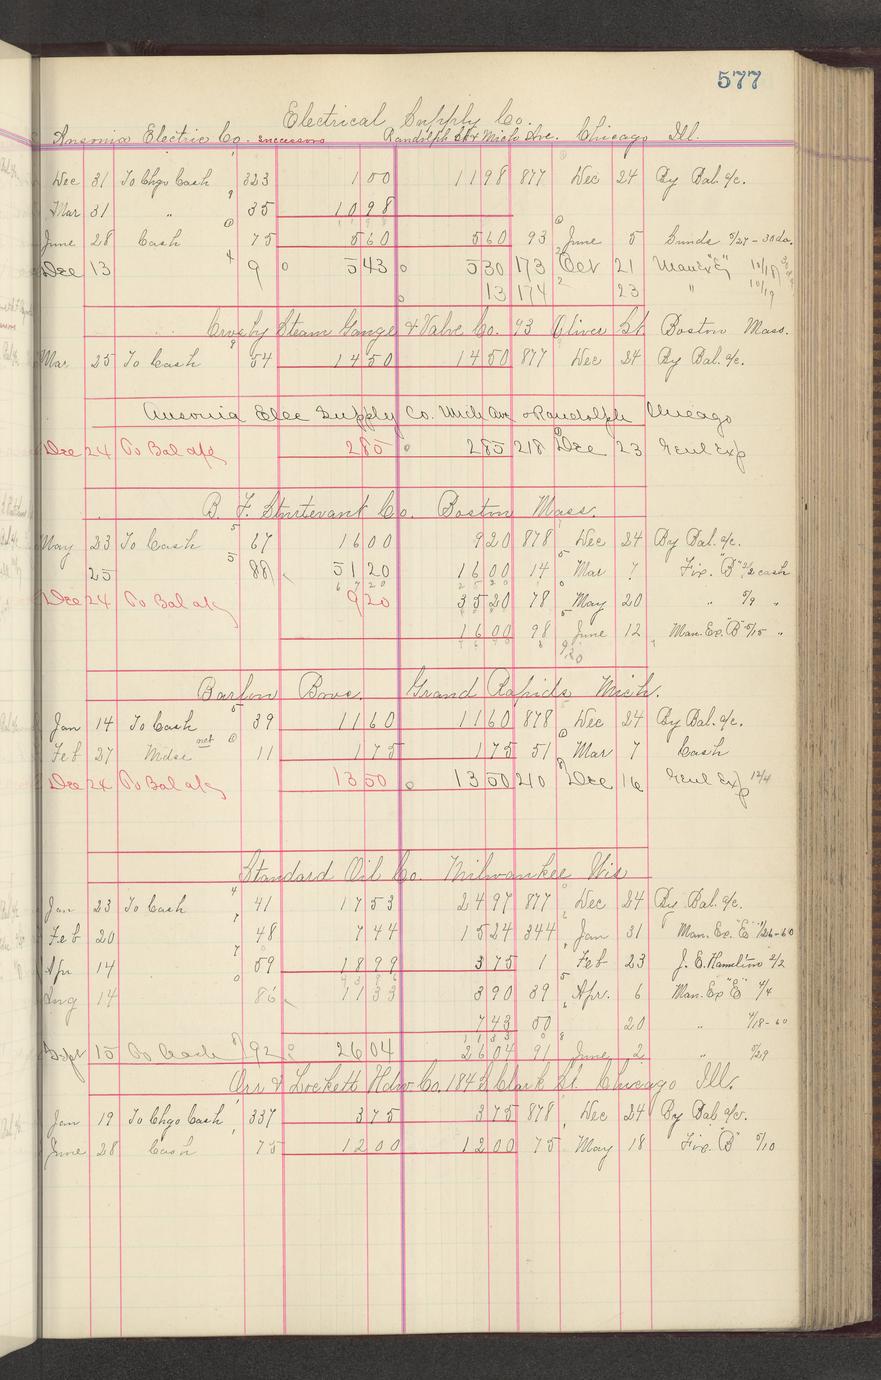 577
Electrical Supply Co.
Ansonia Electric Co. successors Randolph St & Mich Ave. Chicago Ill.
Dec 31 To Chgo Cash 323 1 00 11 98 877 Dec 24 By Bal. a/c.
Mar 31 " 35 10 98
June 28 Cash 75 5 60 5 60 93 June 5 Sunds 5/27 - 30 da.
Dec 13 9 5 43 5 30 173 Oct 21 "E" 10/18
13 174 23 " 10/19
Crosby Steam Gauge & Valve Co. 93 Oliver St Boston Mass.
Mar 25 To Cash 54 14 50 14 50 877 Dec 24 By Bal. a/c.
Ansonia Elec Supply Co. Mich Ave & Randolph Chicago
Dec 24 To Bal a/c 2 85 2 85 218 Dec 23 Genl Exp
B. F. Sturtevant Co. Boston Mass.
May 23 To Cash 67 16 00 9 20 878 Dec 24 By Bal. a/c.
25 88 51 20 16 00 14 Mar 7 Fix. "B" 3/2 cash
Dec 24 To Bal a/c 9 20 35 20 78 May 20 " 5/9 "
16 00 98 June 12 Man. Ex. "B" 5/15 "
Barlow Bros. Grand Rapids Mich.
Jan 14 To Cash 39 11 60 11 60 878 Dec 24 By Bal. a/c.
Feb 27 Mdse net 11 1 75 1 75 51 Mar 7 Cash
Dec 24 To Bal a/c 13 50 13 50 210 Dec 16 Genl Exp 12/4
Standard Oil Co. Milwaukee Wis
Jan 23 To Cash 41 17 53 24 97 877 Dec 24 By Bal. a/c.
Feb 20 48 7 44 15 24 344 Jan 31 Man. Ex. "E" 1/26-60
Apr 14 59 18 99 3 75 1 Feb 23 J. E. Hamelino 2/2
Aug 14 86 11 33 3 90 39 Apr. 6 Man. Exp "E" 4/4
7 43 50 20 " 4/18-60
Sept 15 To Cash 92 26 04 26 04 91 June 2 " 5/29
Orr & Lockett Hdw Co. 184 S. Clark St. Chicago Ill.
Jan 19 To Chgo Cash 337 3 75 3 75 878 Dec 24 By Bal a/c.
June 28 Cash 75 12 00 12 00 75 May 18 Fix. "B" 5/10